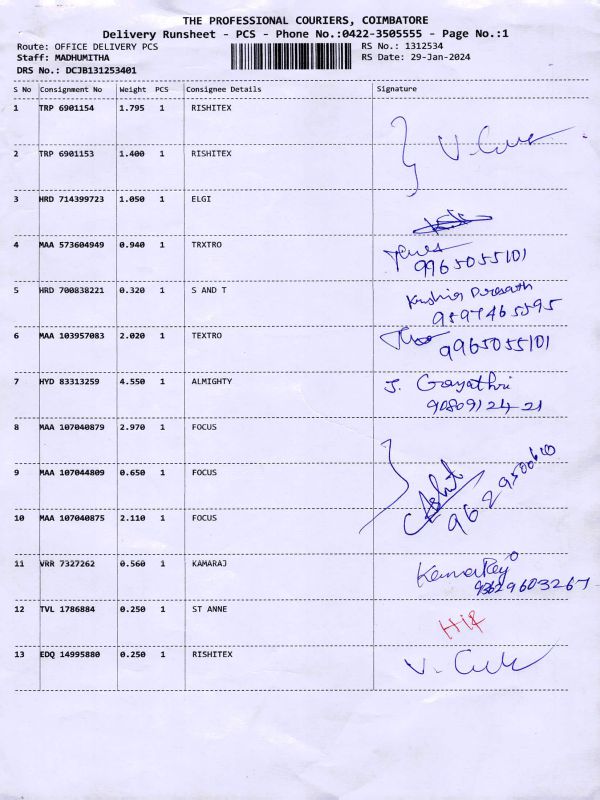 THE PROFESSIONAL COURIERS, COIMBATORE
Delivery Runsheet - PCS - Phone No.:0422-3505555 - Page No.:1
Route: OFFICE DELIVERY PCS
Staff: MADHUMITHA
DRS No.: DCJB131253401
RS No.: 1312534
RS Date: 29-Jan-2024
S No Consignment No Weight PCS Consignee Details Signature
1 TRP 6901154 1.795 1 RISHITEX
2 TRP 6901153 1.400 1 RISHITEX
3 HRD 714399723 1.050 1 ELGI
4 MAA 573604949 0.940 1 TRXTRO
9965055101
5 HRD 700838221 0.320 1 S AND T
9597465595
6 MAA 103957083 2.020 1 TEXTRO
9965055101
7 HYD 83313259 4.550 1 ALMIGHTY J. Gayathri
9080912421
8 MAA 107040879 2.970 1 FOCUS
9 MAA 107044809 0.650 1 FOCUS
9629500610
10 MAA 107040875 2.110 1 FOCUS
11 VRR 7327262 0.560 1 KAMARAJ
12 TVL 1786884 0.250 1 ST ANNE
13 EDQ 14995880 0.250 1 RISHITEX